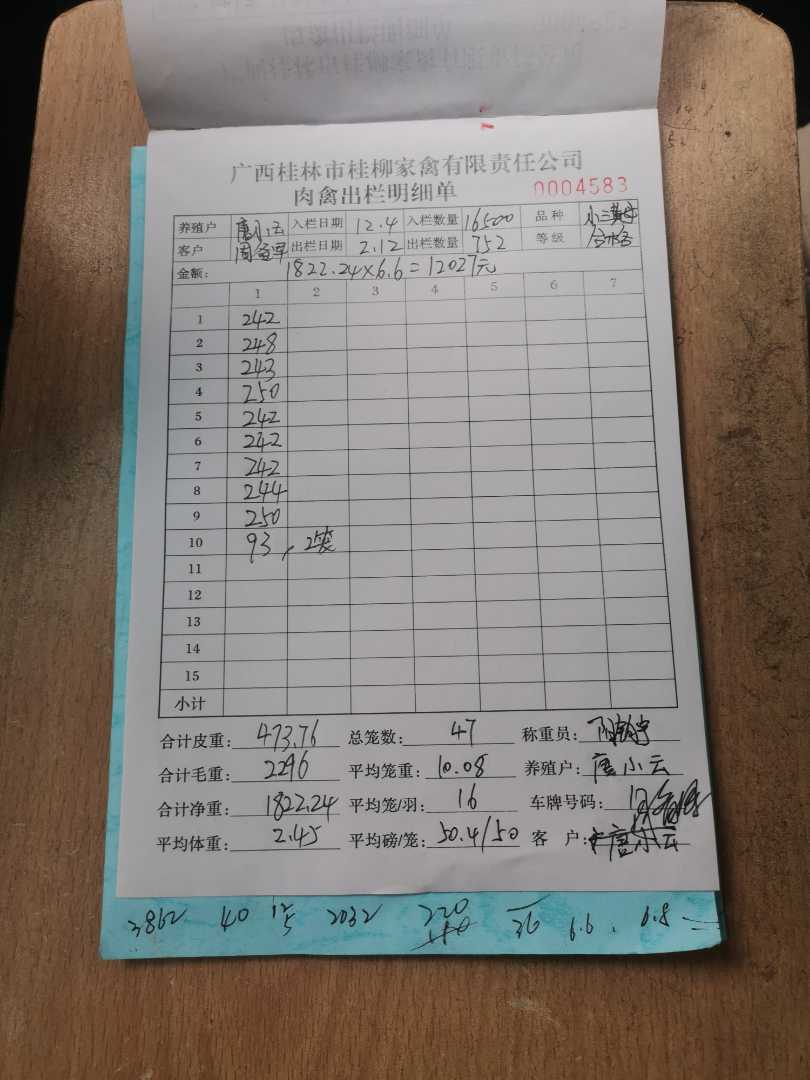 广西桂林市桂柳家禽有限责任公司
肉禽出栏明细单 0004583
养殖户 唐小云 入栏日期 12.4 入栏数量 16500 品种 小三黄
客户 出栏日期 2.12 出栏数量 752 等级
金额: 1822.24×6.6=12027元
1 2 3 4 5 6 7
1 242
2 248
3 243
4 250
5 242
6 242
7 242
8 244
9 250
10 93, 2笼
11
12
13
14
15
小计
合计皮重: 473.76 总笼数: 47 称重员:
合计毛重: 2296 平均笼重: 10.08 养殖户: 唐小云
合计净重: 1822.24 平均笼/羽: 16 车牌号码:
平均体重: 2.45 平均磅/笼: 50.4/50 客 户: 唐小云
3862 40 12 5 2032 220 36 6.6. 6.8